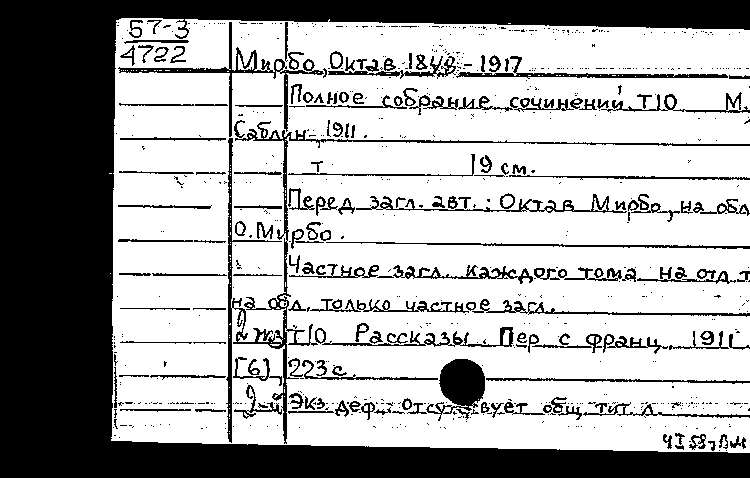 57-3
4722
Мирбо, Октав, 1848-1917
Полное собрание сочинений. Т10 М.,
Саблин, 1911.
т 19 см.
Перед загл. авт.: Октав Мирбо, на обл
О. Мирбо.
Частное загл. каждого тома на отд т
на обл. только частное загл.
2 экз Т10 Рассказы. Пер с франц. 1911
[6], 223 с.
2-й Экз деф.: отсутствует общ. тит. л.